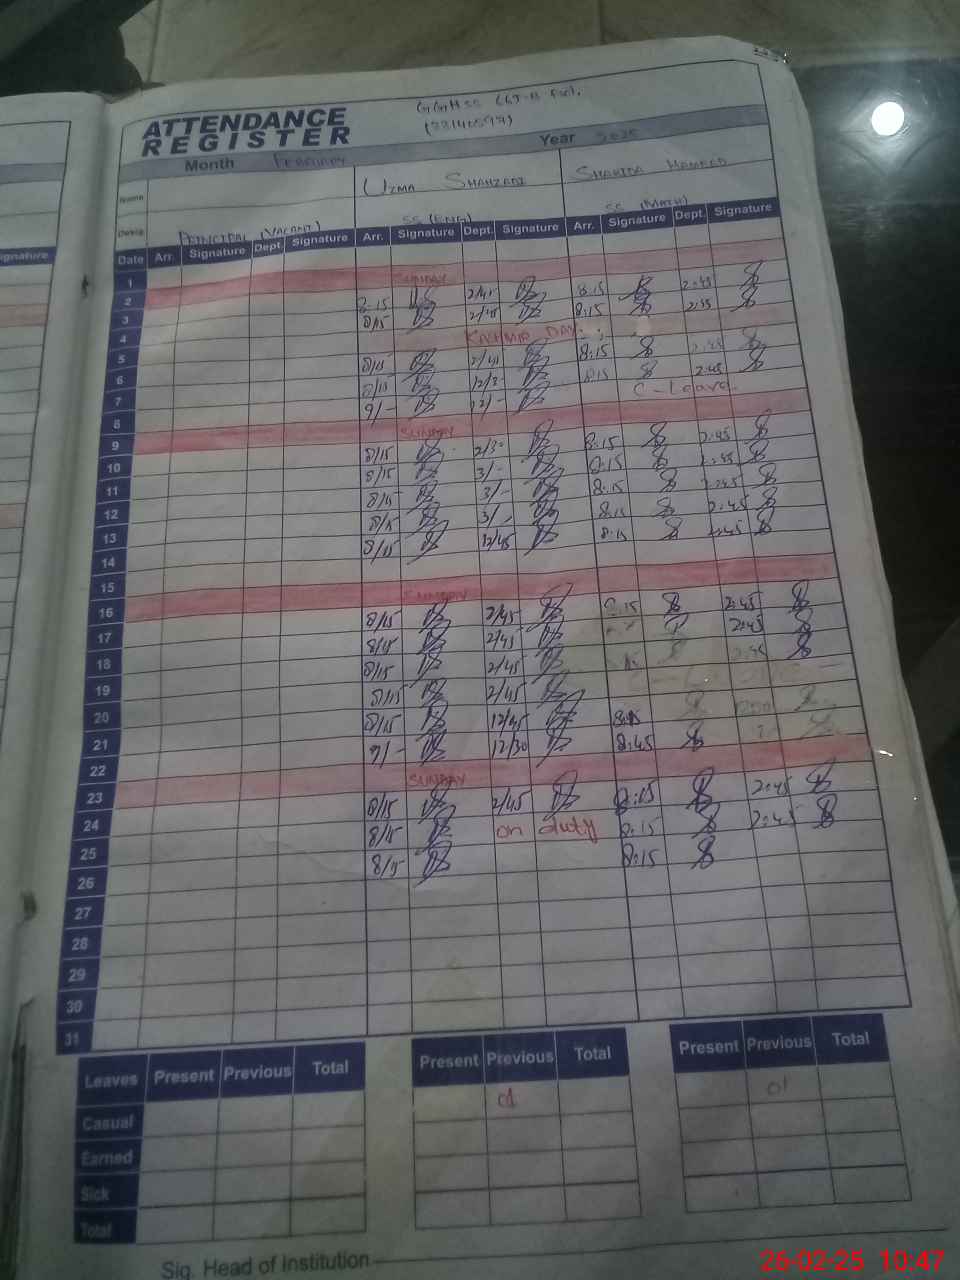 ATTENDANCE
REGISTER
GGHSS
Month February Year 2025
Name UZMA SHAHZADI SHAHIDA HAMEED
Desig PRINCIPAL (VACANT) SS (ENG) SS (MATH)
Date Arr. Signature Dept. Signature Arr. Signature Dept. Signature Arr. Signature Dept. Signature
1
2 SUNDAY
3 8-15 2/45 8:15 2:45
4 8/15 2/45 8:15 2:45
5 KASHMIR DAY
6 8/15 2/45 8:15 2:45
7 8/15 12/30 8:15 2:45
8 9/- 12/- C-Leave
9 SUNDAY
10 8/15 2/30 8:15 2:45
11 8/15 3/- 8:15 2:45
12 8/15 3/- 8:15 2:45
13 8/15 3/- 8:15 2:45
14 8/15 12/45 8:15 2:45
15
16 SUNDAY
17 8/15 2/45 8:15 2:45
18 8/15 2/45 2:45
19 8/15 2/45 2:45
20 8/15 2/45
21 8/15 12/45 8:15
22 9/- 12/30 8:45
23 SUNDAY
24 8/15 2/45 8:15 2:45
25 8/15 on duty 8:15 2:45
26 8/15 8:15
27
28
29
30
31
Leaves Present Previous Total Present Previous Total Present Previous Total
Casual 01 01
Earned
Sick
Total
Sig. Head of Institution
26-02-25 10:47